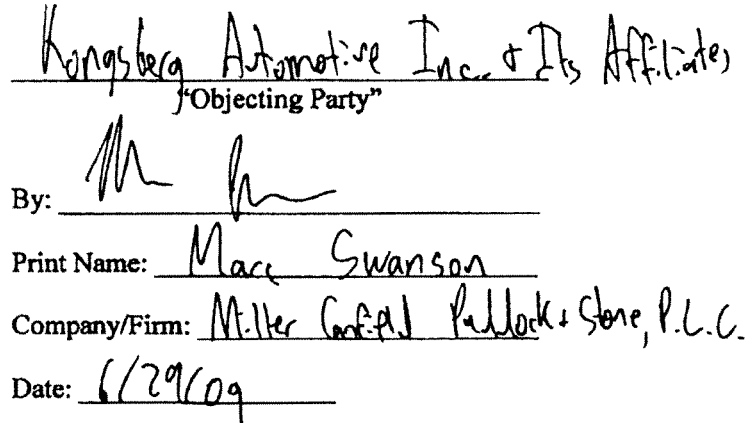 Kongsberg Automotive Inc. & Its Affiliates
"Objecting Party"
By:
Print Name: Marc Swanson
Company/Firm: Miller Canfield Paddock & Stone, P.L.C.
Date: 6/29/09